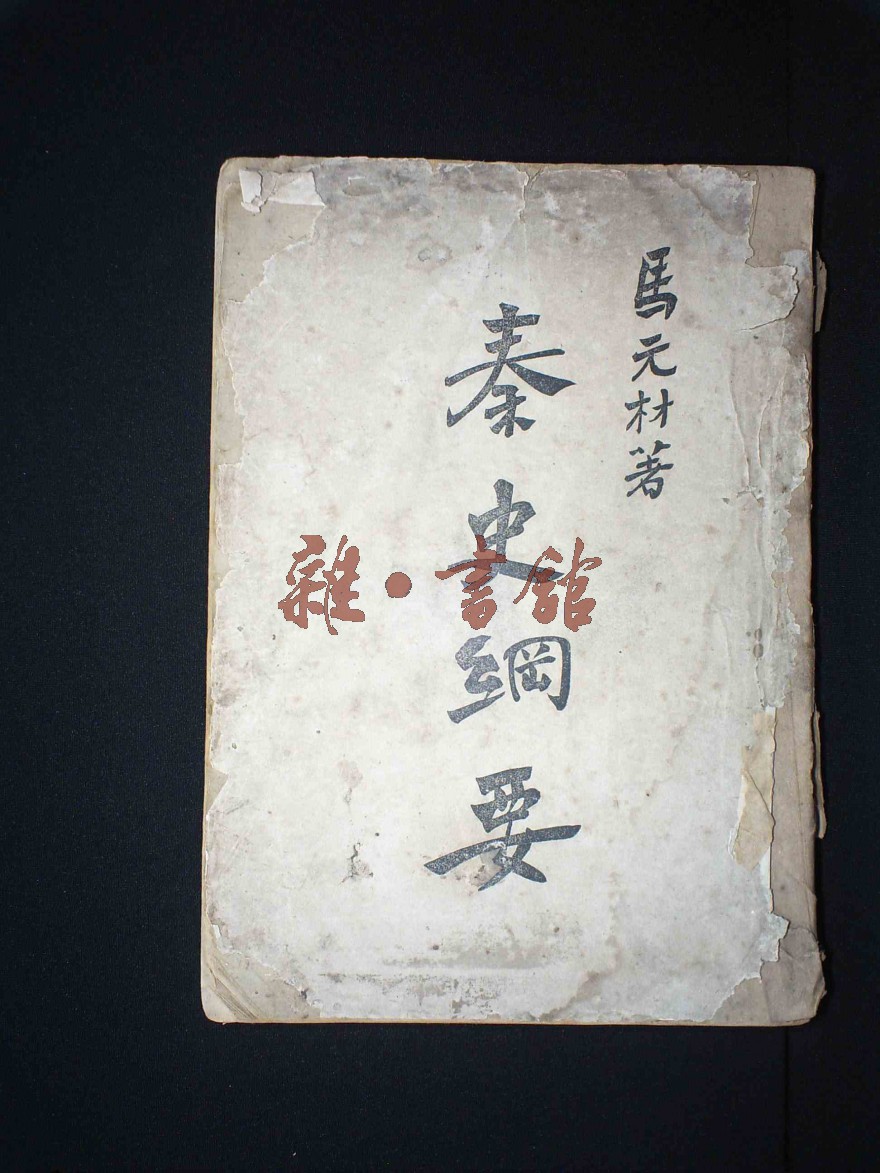 馬元材著
秦史綱要
雜·書館